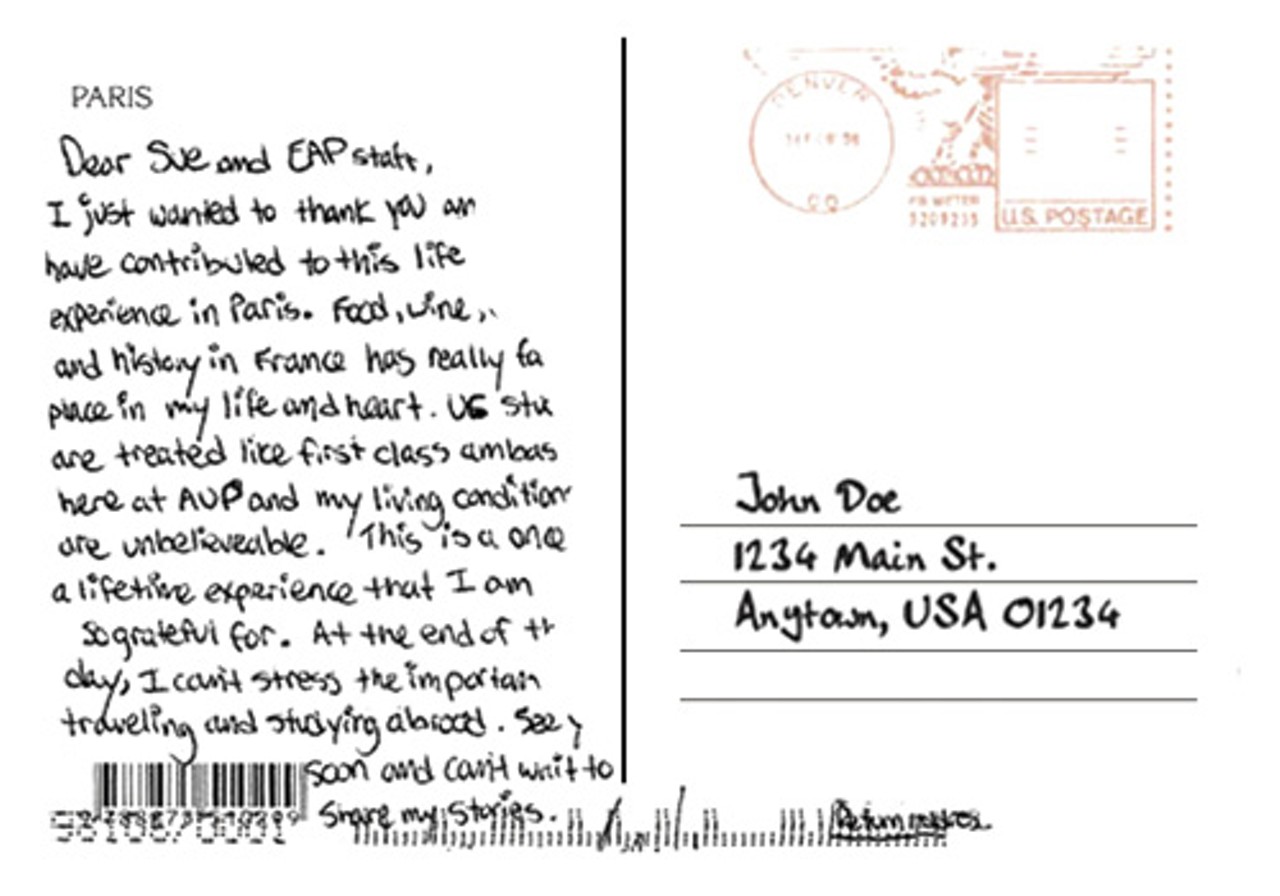 PARIS
Dear Sue and EAP staff,
I just wanted to thank you an
have contributed to this life
experience in Paris. Food, wine,
and history in France has really fa
place in my life and heart. US stu
are treated like first class ambas
here at AUP and my living condition
are unbelieveable. This is a once
a lifetime experience that I am
so grateful for. At the end of th
day, I can't stress the importan
traveling and studying abroad. See y
soon and can't wait to
share my stories.
DENVER
CO
PB METER
U.S. POSTAGE
John Doe
1234 Main St.
Anytown, USA 01234
Return